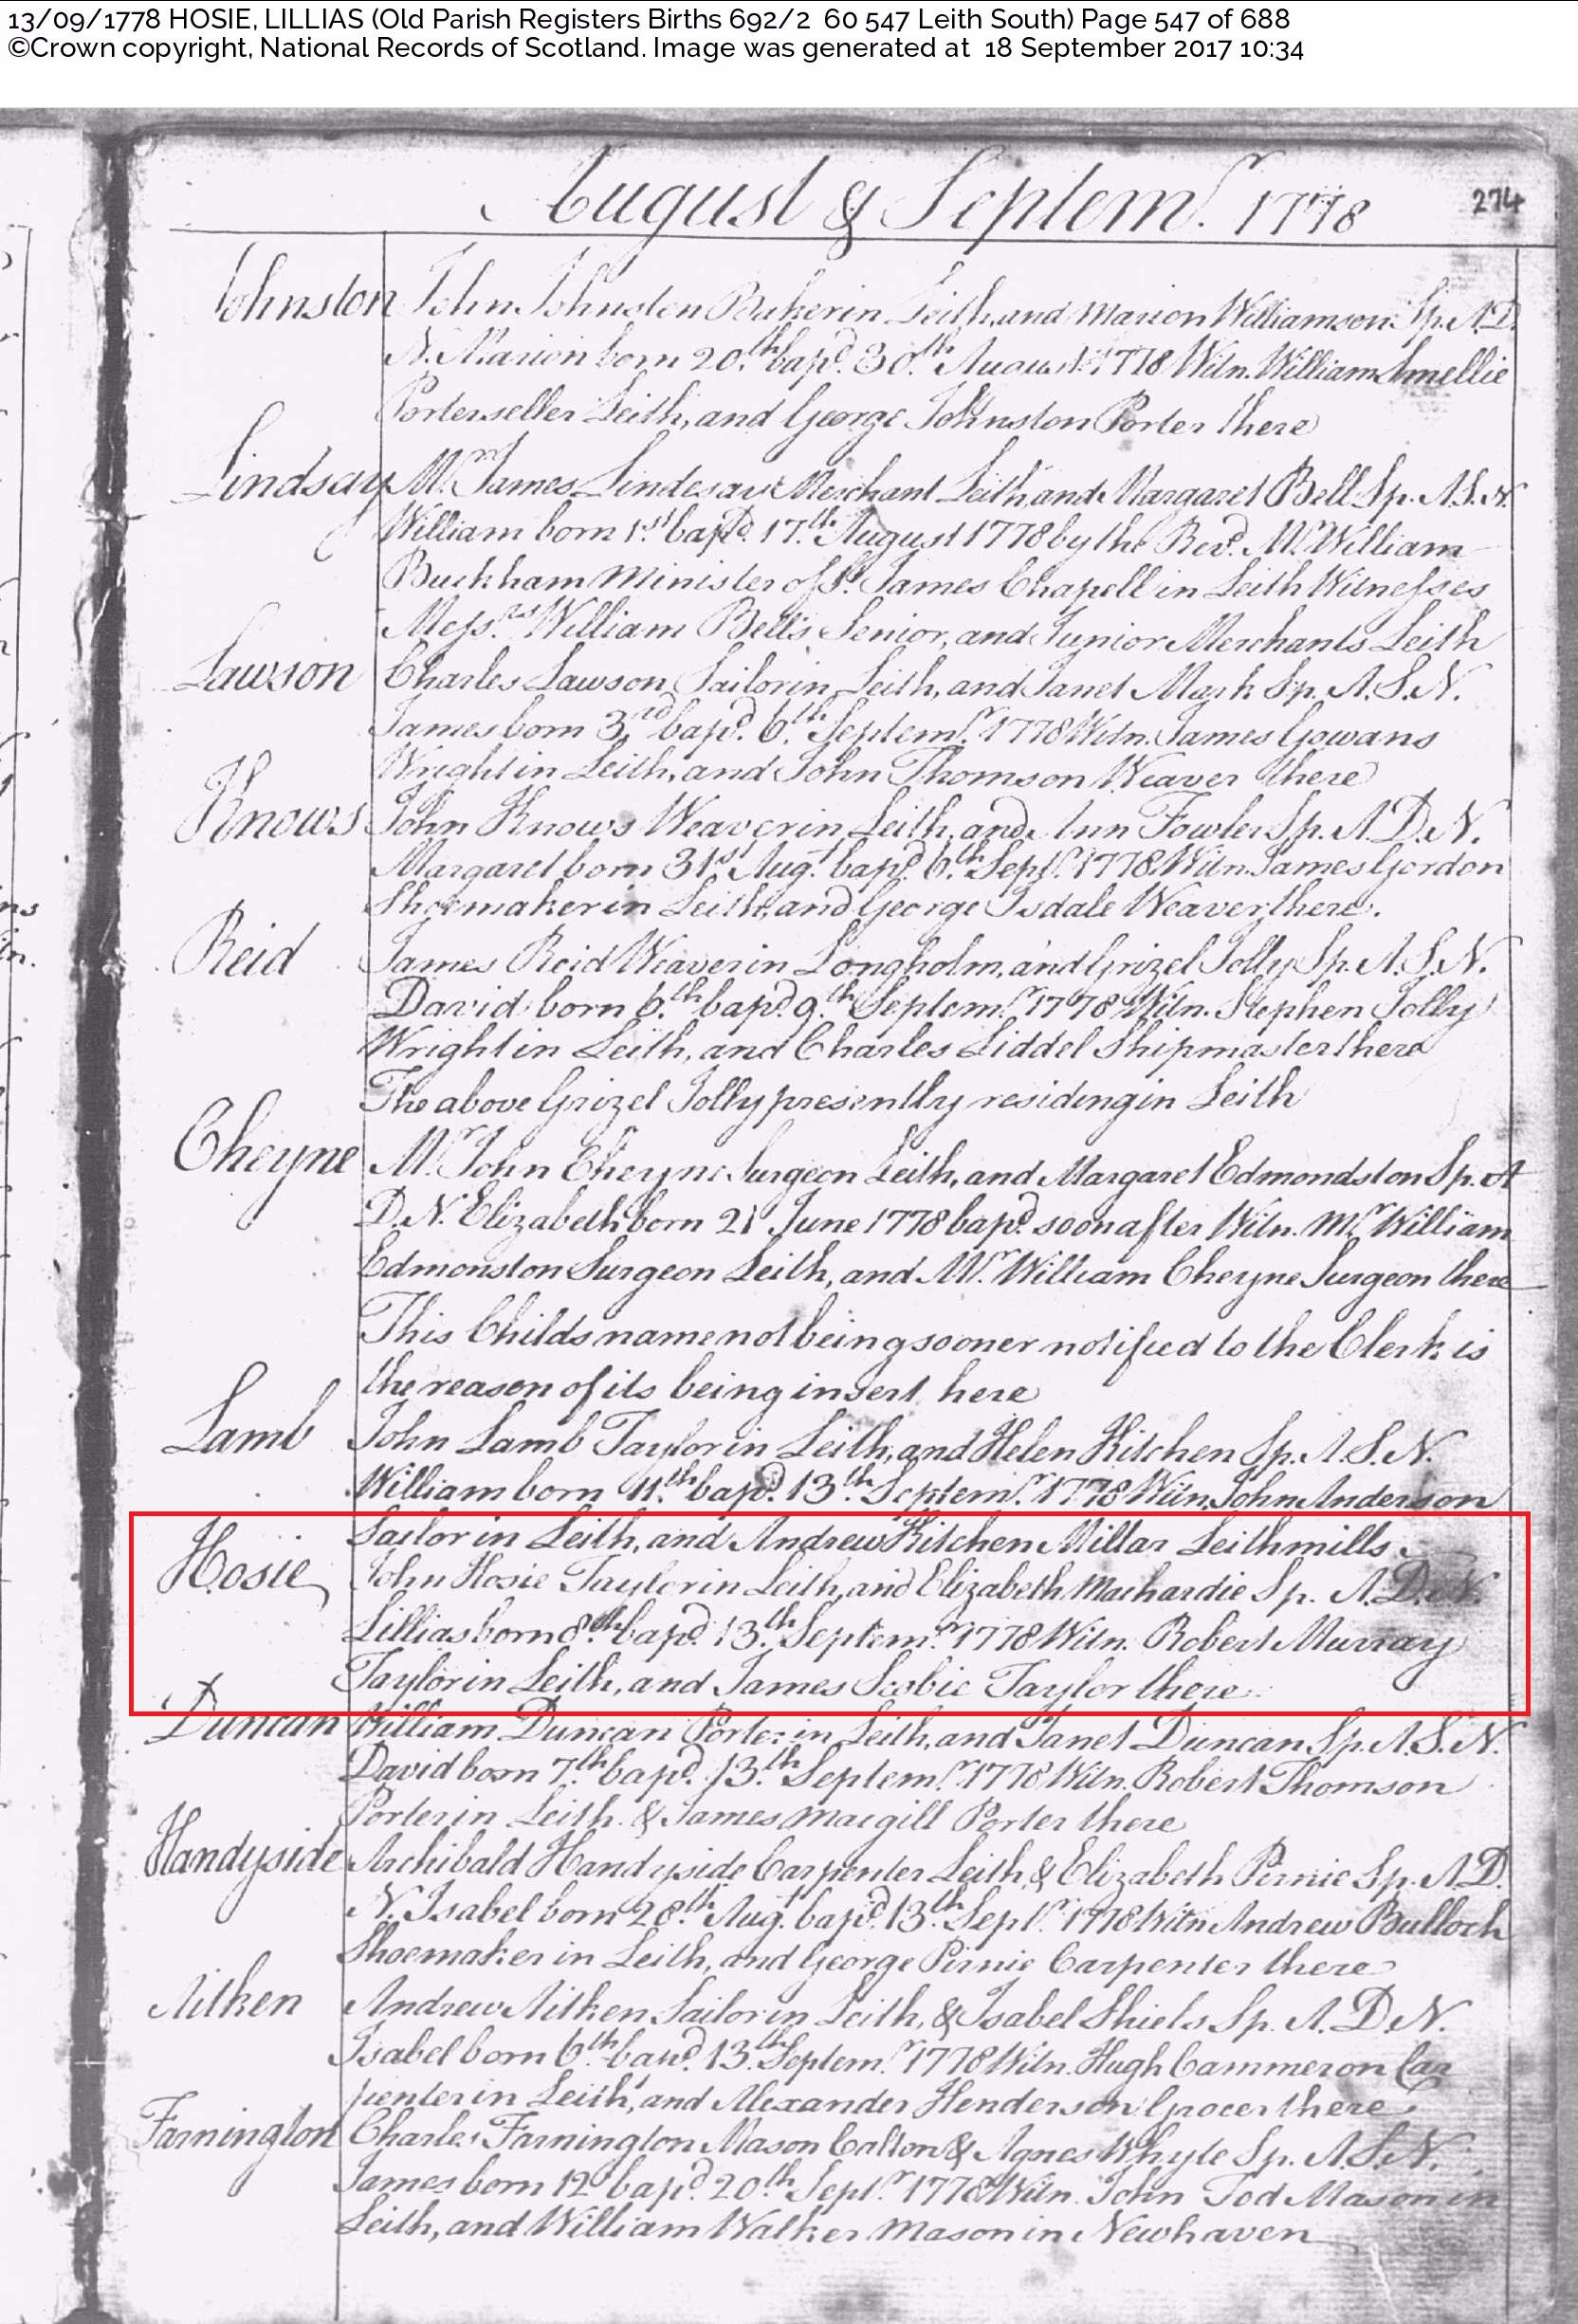 13/09/1778 HOSIE, LILLIAS (Old Parish Registers Births 692/2 60 547 Leith South) Page 547 of 688
©Crown copyright, National Records of Scotland. Image was generated at 18 September 2017 10:34
August & Septemr. 1778 274
Johnston John Johnston Baker in Leith, and Marion Williamson Sp. A. D.
N. Marion born 20th. bapd. 30th. August 1778 Witn. William Smellie
Porterseller Leith, and George Johnston Porter there
Lindsay Mr. James Lindesay Merchant Leith, and Margaret Bell Sp. A. S. N.
William born 1st bapd. 17th. August 1778 by the Revd. Mr. William
Buckham Minister of St. James Chapell in Leith Witnesses
Messrs. William Bells Senior, and Junior Merchants Leith
Lawson Charles Lawson Sailor in Leith, and Janet Mark Sp. A. S. N.
James born 3rd bapd. 6th. Septemr. 1778 Witn. James Gowans
Wright in Leith, and John Thomson Weaver there
Knows John Knows Weaver in Leith, and Ann Fowler Sp. A. D. N.
Margaret born 31st Augt. bapd. 6th. Septr. 1778 Witn. James Gordon
Shoemaker in Leith, and George Isdale Weaver there.
Reid James Reid Weaver in Longholm, and Grizel Jolly Sp. A. S. N.
David born 6th. bapd. 9th. Septemr. 1778 Witn. Stephen Jolly
Wright in Leith, and Charles Liddel Shipmaster there
The above Grizel Jolly presently residing in Leith
Cheyne Mr. John Cheyne Surgeon Leith, and Margaret Edmondston Sp. A
D. N. Elizabeth born 21 June 1778 bapd. soon after Witn. Mr William
Edmonston Surgeon Leith, and Mr. William Cheyne Surgeon there
This Childs name not being sooner notified to the Clerk is
the reason of its being insert here
Lamb John Lamb Taylor in Leith, and Helen Kitchen Sp. A. S. N.
William born 11th. bapd. 13th. Septemr. 1778 Witn. John Anderson
Sailor in Leith, and Andrew Kitchen Millar Leithmills.
Hosie John Hosie Taylor in Leith, and Elizabeth Machardie Sp. A. D. N.
Lillias born 8th. bapd. 13th. Septemr. 1778 Witn. Robert Murray
Taylor in Leith, and James Scobie Taylor there.
Duncan William Duncan Porter in Leith, and Janet Duncan Sp. A. S. N.
David born 7th. bapd. 13th. Septemr. 1778 Witn. Robert Thomson
Porter in Leith. & James Macgill Porter there
Handyside Archibald Handyside Carpenter Leith & Elizabeth Pirnie Sp. A. D.
N. Isabel born 28th. Augt. bapd. 13th. Septr. 1778 Witn Andrew Bulloch
Shoemaker in Leith, and George Pirnie Carpenter there
Aitken Andrew Aitken Sailor in Leith, & Isabel Shiels Sp. A. D. N.
Isabel born 6th. bapd. 13th. Septemr. 1778 Witn. Hugh Cammeron Car
penter in Leith, and Alexander Henderson Grocer there
Farnington Charles Farnington Mason Calton & Agnes Whyte Sp. A. S. N.
James born 12 bapd. 20th. Septr. 1778 Witn. John Tod Mason in
Leith, and William Walker Mason in Newhaven